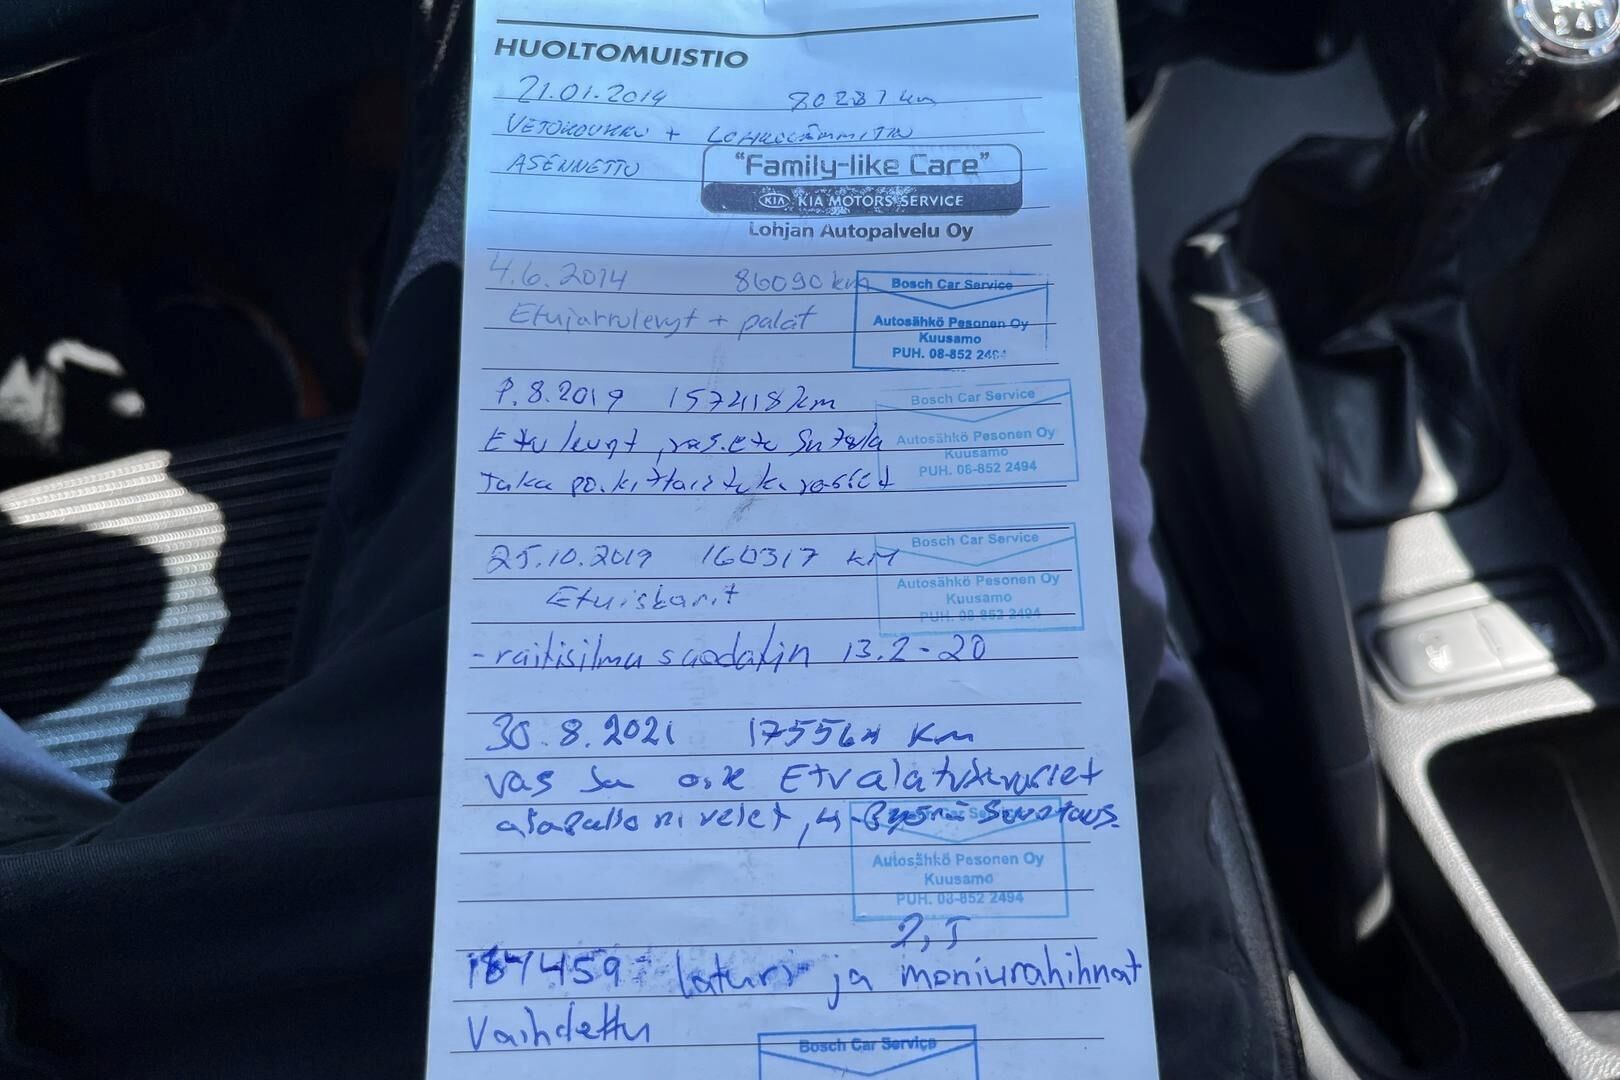 HUOLTOMUISTIO
21.01.2014 80287 km
VETOKOUKKU + LOHKOLÄMMITIN
ASENNETTU
"Family-like Care"
KIA KIA MOTORS SERVICE
Lohjan Autopalvelu Oy
4.6.2014 86090 km
Bosch Car Service
Etujarrulevyt + palat
Autosähkö Pesonen Oy
Kuusamo
PUH. 08-852 2494
8.2019 km
Bosch Car Service
Etu levyt
Autosähkö Pesonen Oy
Kuusamo
PUH. 08-852 2494
Taka
25.10.2019 160317 KM
Bosch Car Service
Etuiskarit
Autosähkö Pesonen Oy
Kuusamo
PUH. 08-852 2494
- raitisilma suodatin 13.2-20
30.8.2021 175564 Km
vas Etu alatukivarret
alapallonivelet, 4-Pyörä Suuntaus.
Autosähkö Pesonen Oy
Kuusamo
PUH. 08-852 2494
187459 laturi ja moniurahihnat
Vaihdettu
Bosch Car Service